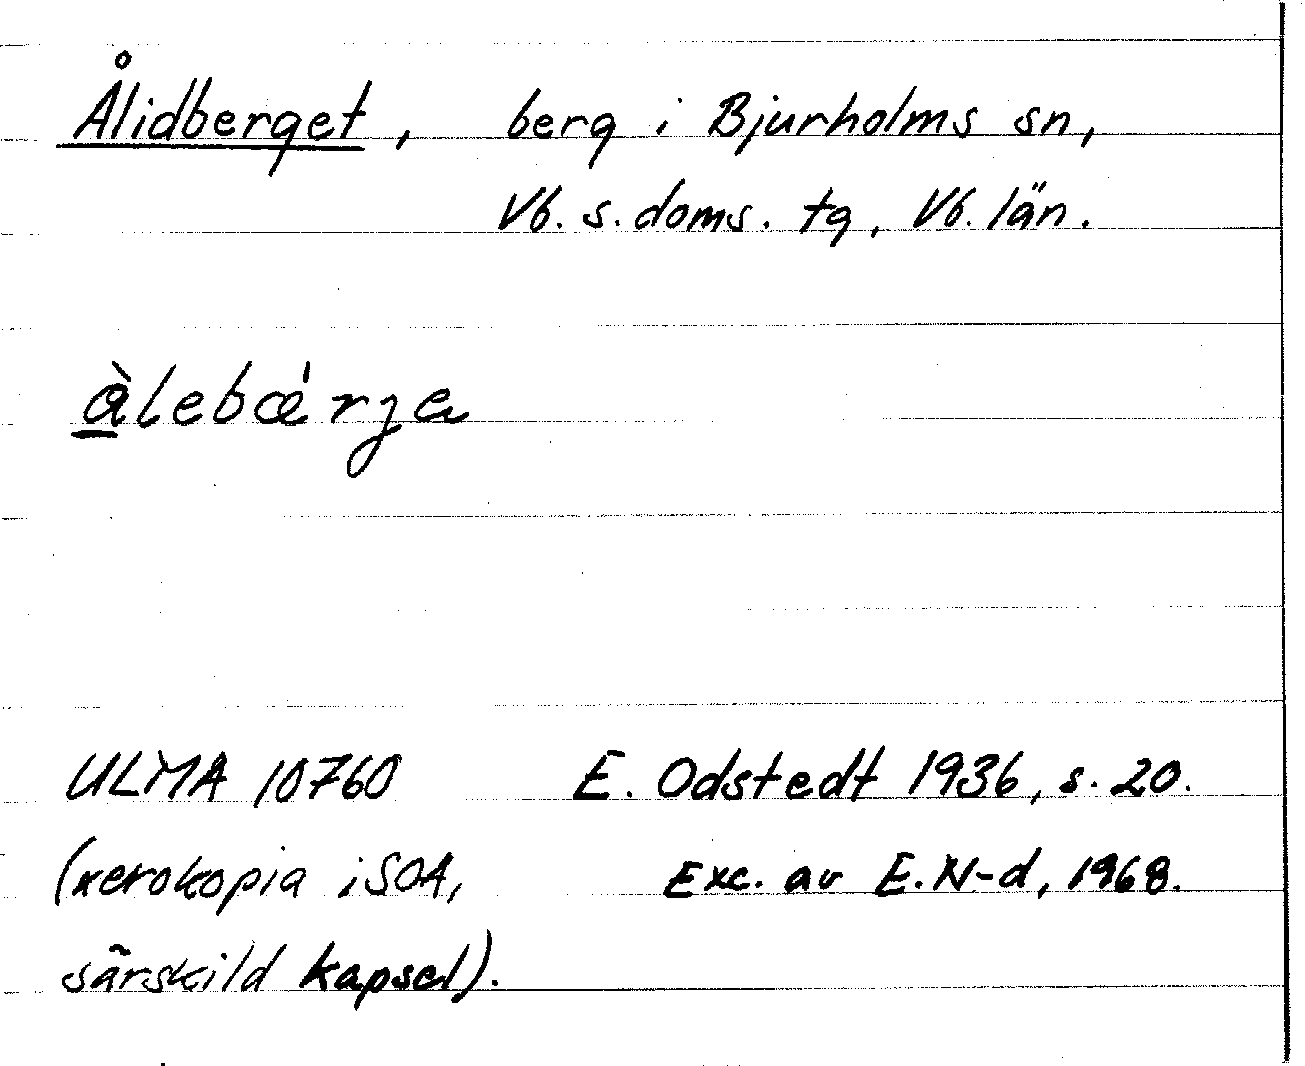 Ålidberget, berg i Bjurholms sn,
Vb. s. doms. tg, Vb. län.
à̲lebæ'rʒa
ULMA 10760 E. Odstedt 1936, s. 20.
(xerokopia i SOA, Exc. av E. N-d, 1968.
särskild kapsel).